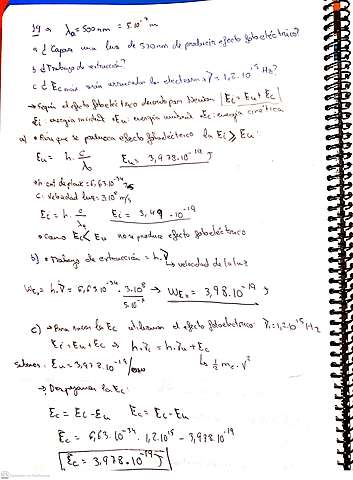 19 a λ₀ = 500 nm = 5·10⁻⁷ m
a ¿ Capaz una luz de 570nm de producir efecto fotoeléctrico?
b ¿ Trabajo de extracción?
c ¿ Ec más arrancados los electrones γ = 1,2·10¹⁵ Hz?
→ Según el efecto fotoeléctrico por Einstein | Ei = Eu + Ec |
Ei: energía incidente • Eu: energía umbral • Ec: energía cinética
a) • Para que se produzca efecto fotoeléctrico la Ei ≥ Eu:
Eu = h · c/λ₀ Eu = 3,978·10⁻¹⁹ J
• h: cte de planck = 6,63·10⁻³⁴
c: velocidad luz = 3·10⁸ m/s
Ei = h · c/λ₀ Ei = 3,49·10⁻¹⁹
• Como Ei < Eu no se produce efecto fotoeléctrico
b) • Trabajo de extracción = h·γ
↳ velocidad de la luz
= 6,63·10⁻³⁴ · 3·10⁸/5·10⁻⁷ → = 3,98·10⁻¹⁹ J
c) → Para sacar la Ec utilizamos el efecto fotoeléctrico γi = 1,2·10¹⁵ Hz
Ei = Eu + Ec ⇒ h·γi = h·γu + Ec
↳ ½ me · v²
Sabemos: Eu = 3,978·10⁻¹⁹
→ Despejamos la Ec:
Ec = Ei - Eu Ec = Ei - Eu
Ec = 6,63·10⁻³⁴ · 1,2·10¹⁵ - 3,978·10⁻¹⁹
Ec = 3,978·10⁻¹⁹ J